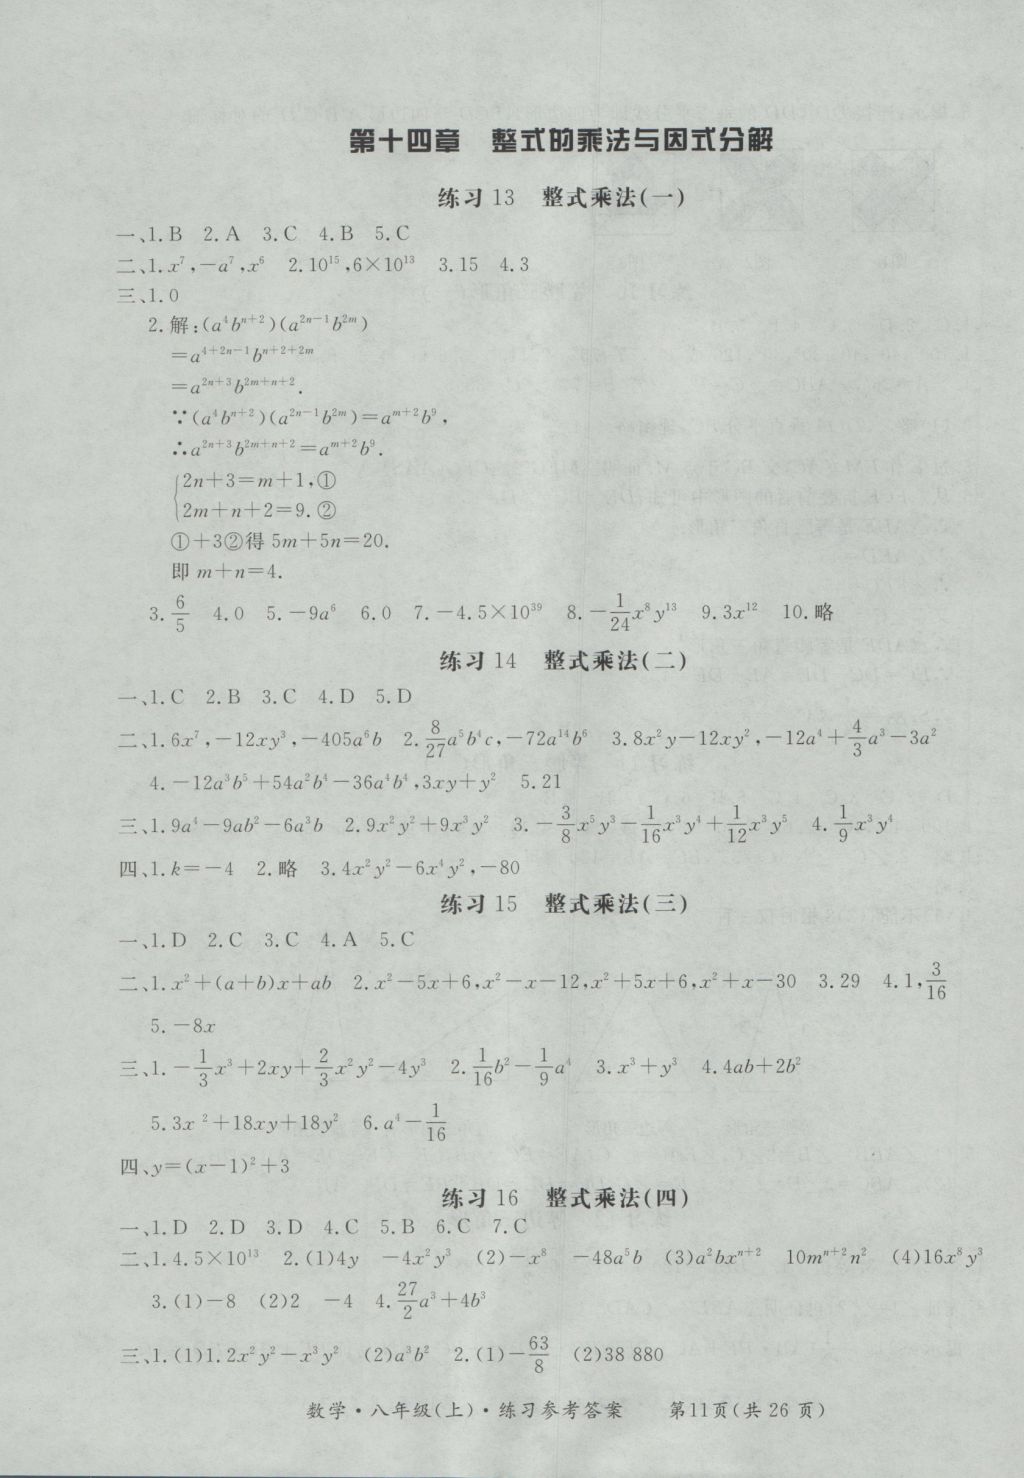 第十四章 整式的乘法与因式分解
练习 13 整式乘法(一)
一、1.B 2.A 3.C 4.B 5.C
二、1.x⁷,−a⁷,x⁶ 2.10¹⁵,6×10¹³ 3.15 4.3
三、1.0
2.解:(a⁴bⁿ⁺²)(a²ⁿ⁻¹b²ᵐ)
=a⁴⁺²ⁿ⁻¹bⁿ⁺²⁺²ᵐ
=a²ⁿ⁺³b²ᵐ⁺ⁿ⁺².
∵(a⁴bⁿ⁺²)(a²ⁿ⁻¹b²ᵐ)=aᵐ⁺²b⁹,
∴a²ⁿ⁺³b²ᵐ⁺ⁿ⁺²=aᵐ⁺²b⁹.
{2n+3=m+1,①
2m+n+2=9.②
①+3②得 5m+5n=20.
即 m+n=4.
3.6/5 4.0 5.−9a⁶ 6.0 7.−4.5×10³⁹ 8.−1/24x⁸y¹³ 9.3x¹² 10.略
练习 14 整式乘法(二)
一、1.C 2.B 3.C 4.D 5.D
二、1.6x⁷,−12xy³,−405a⁶b 2.8/27a⁵b⁴c,−72a¹⁴b⁶ 3.8x²y−12xy²,−12a⁴+4/3a³−3a²
4.−12a³b⁵+54a²b⁴−36a⁴b⁴,3xy+y² 5.21
三、1.9a⁴−9ab²−6a³b 2.9x²y²+9x³y² 3.−3/8x⁵y³−1/16x³y⁴+1/12x³y⁵ 4.1/9x³y⁴
四、1.k=−4 2.略 3.4x²y²−6x⁴y²,−80
练习 15 整式乘法(三)
一、1.D 2.C 3.C 4.A 5.C
二、1.x²+(a+b)x+ab 2.x²−5x+6,x²−x−12,x²+5x+6,x²+x−30 3.29 4.1,3/16
5.−8x
三、1.−1/3x³+2xy+2/3x²y²−4y³ 2.1/16b²−1/9a⁴ 3.x³+y³ 4.4ab+2b²
5.3x²+18xy+18y² 6.a⁴−1/16
四、y=(x−1)²+3
练习 16 整式乘法(四)
一、1.D 2.D 3.D 4.C 5.B 6.C 7.C
二、1.4.5×10¹³ 2.(1)4y −4x²y³ (2)−x⁸ −48a⁵b (3)a²bxⁿ⁺² 10mⁿ⁺²n² (4)16x⁸y³
3.(1)−8 (2)2 −4 4.27/2a³+4b³
三、1.(1)1.2x²y²−x³y² (2)a³b² 2.(1)−63/8 (2)38 880
数学·八年级(上)·练习参考答案 第11页(共 26 页)